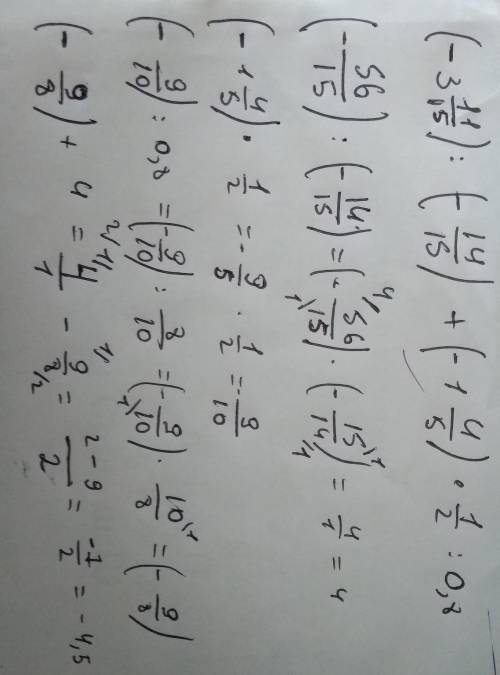 (-3 11/15) : (-14/15) + (-1 4/5) · 1/2 : 0,8
(-56/15) : (-14/15) = (-56/15) · (-15/14) = 4/1 = 4
(-1 4/5) · 1/2 = -9/5 · 1/2 = -9/10
(-9/10) : 0,8 = (-9/10) : 8/10 = (-9/10) · 10/8 = (-9/8)
(-9/8) + 4 = 4/1 - 9/8 = 2-9/2 = -7/2 = -4,5